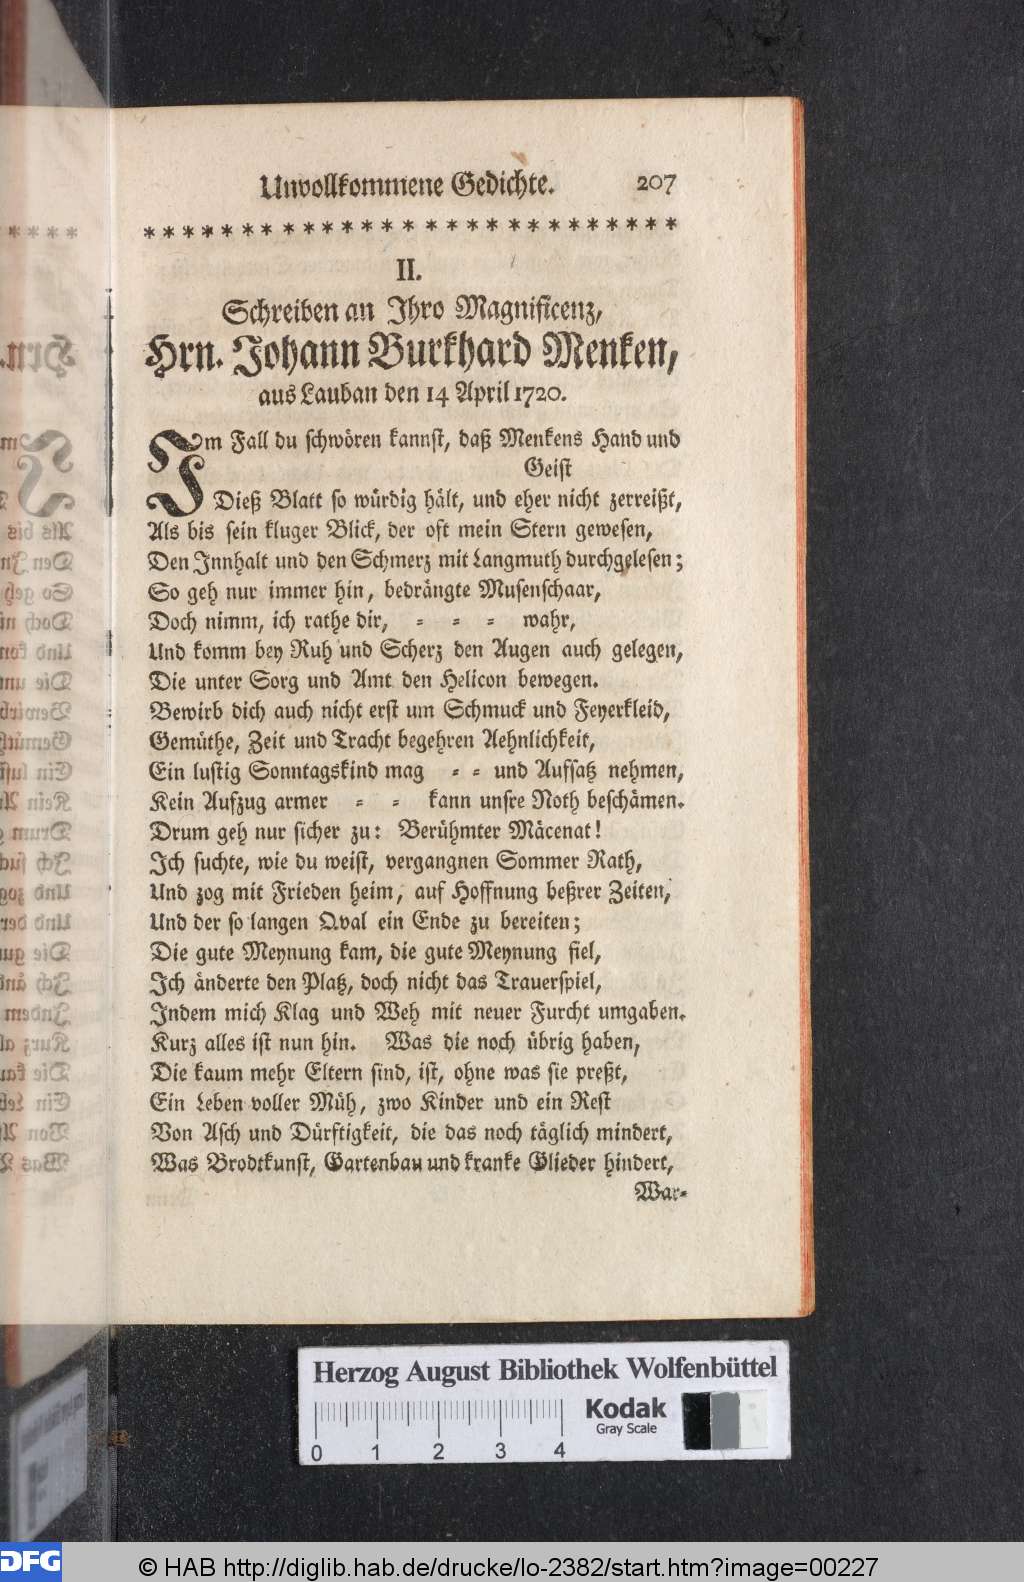 Unvollkommene Gedichte. 207
* * * * * * * * * * * * * * * * * * * * * * * * * * *
II.
Schreiben an Ihro Magnificenz,
Hrn. Johann Burkhard Menken,
aus Lauban den 14 April 1720.
Im Fall du schwören kannst, daß Menkens Hand und
Geist
Dieß Blatt so würdig hält, und eher nicht zerreißt,
Als bis sein kluger Blick, der oft mein Stern gewesen,
Den Innhalt und den Schmerz mit Langmuth durchgelesen;
So geh nur immer hin, bedrängte Musenschaar,
Doch nimm, ich rathe dir, = = = wahr,
Und komm bey Ruh und Scherz den Augen auch gelegen,
Die unter Sorg und Amt den Helicon bewegen.
Bewirb dich auch nicht erst um Schmuck und Feyerkleid,
Gemüthe, Zeit und Tracht begehren Aehnlichkeit,
Ein lustig Sonntagskind mag = = und Aufsatz nehmen,
Kein Aufzug armer = = kann unsre Noth beschämen.
Drum geh nur sicher zu: Berühmter Mäcenat!
Ich suchte, wie du weist, vergangnen Sommer Rath,
Und zog mit Frieden heim, auf Hoffnung beßrer Zeiten,
Und der so langen Qval ein Ende zu bereiten;
Die gute Meynung kam, die gute Meynung fiel,
Ich änderte den Platz, doch nicht das Trauerspiel,
Indem mich Klag und Weh mit neuer Furcht umgaben.
Kurz alles ist nun hin. Was die noch übrig haben,
Die kaum mehr Eltern sind, ist, ohne was sie preßt,
Ein Leben voller Müh, zwo Kinder und ein Rest
Von Asch und Dürftigkeit, die das noch täglich mindert,
Was Brodtkunst, Gartenbau und kranke Glieder hindert,
War=
Herzog August Bibliothek Wolfenbüttel
Kodak
Gray Scale
0 1 2 3 4
DFG © HAB http://diglib.hab.de/drucke/lo-2382/start.htm?image=00227